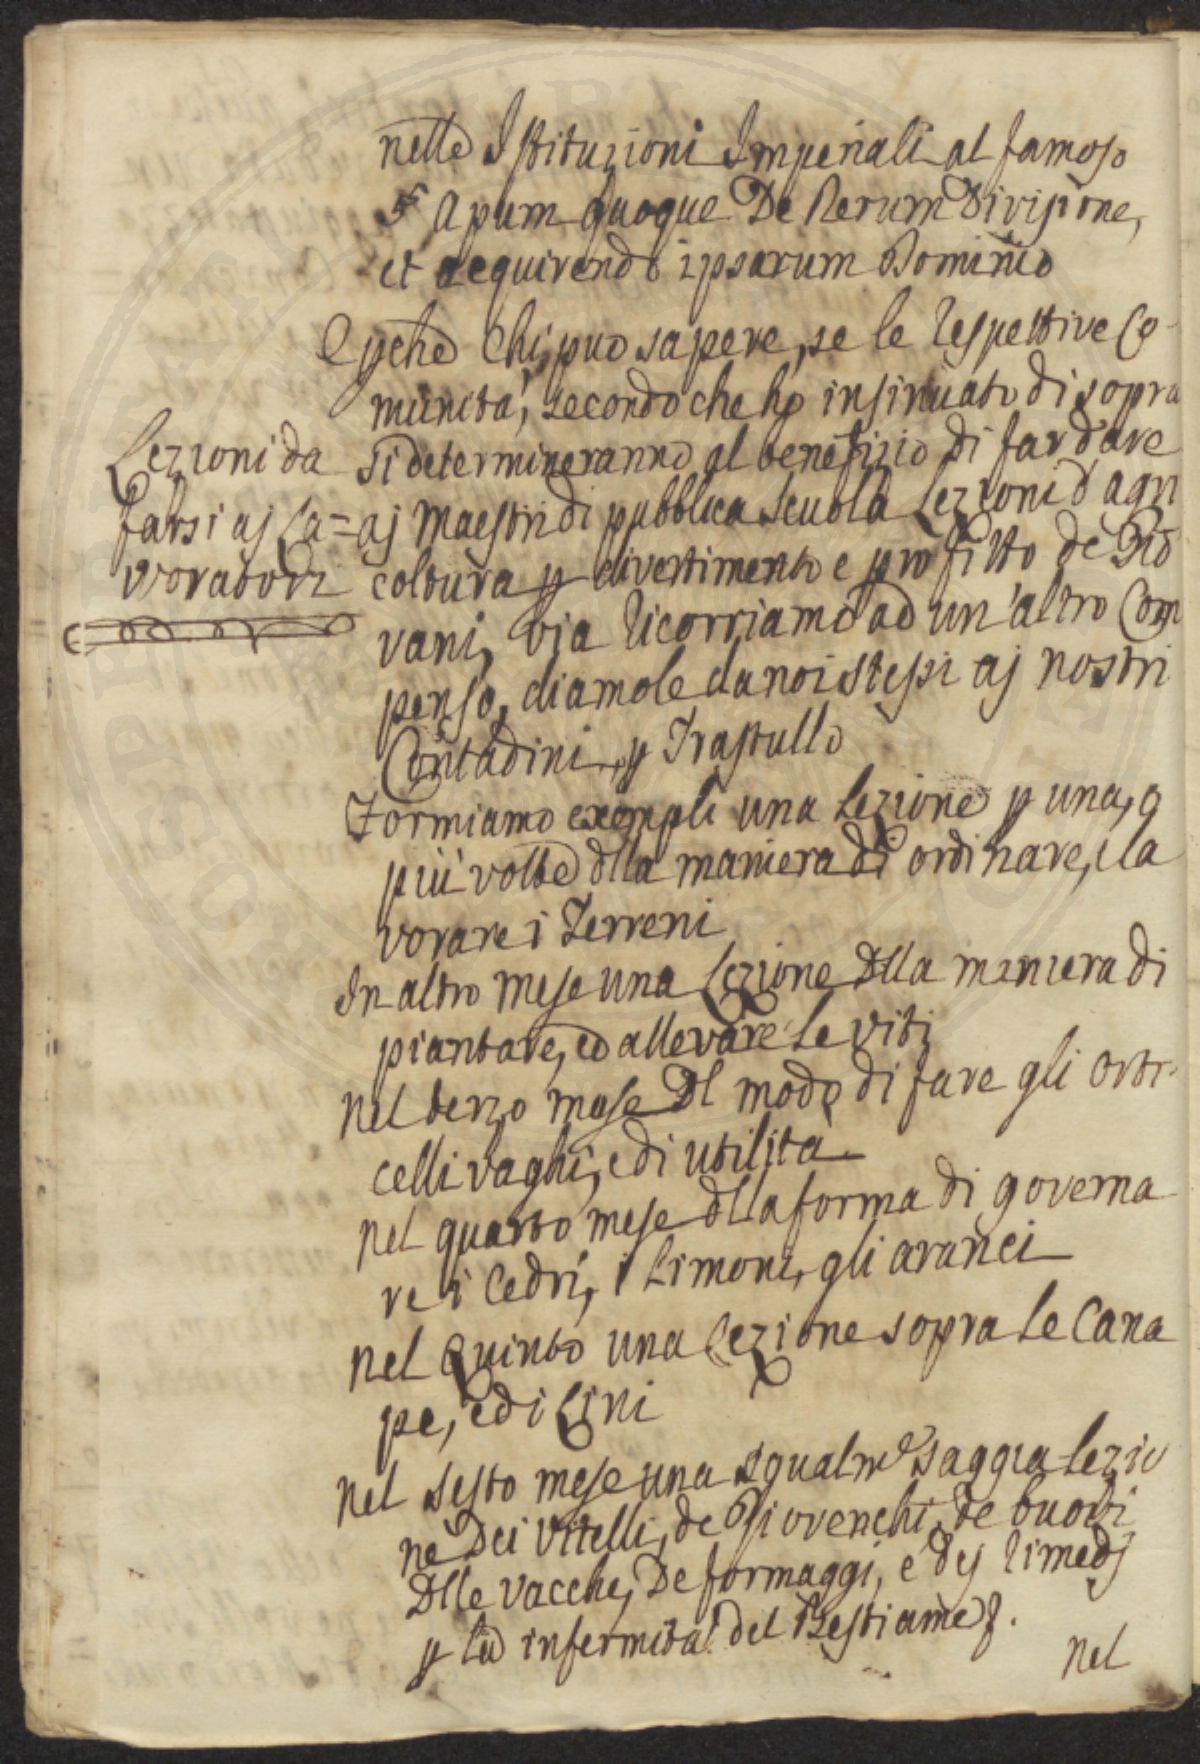 nelle Istituzioni Imperiali al famoso
§ Apum quoque De Rerum Divisione,
et acquirendo ipsarum Dominio
E pche chi può sapere, se le respettive Co-
munità, secondo che ho insinuato di sopra
si determineranno al benefizio di far dare
aj Maestri di pubblica scuola Lezioni d'agri
coltura p divertimento e profitto de Gio
vani, via ricorriamo ad un'altro Com
penso, diamole da noi stessi aj nostri
Contadini, p Trastullo
Lezioni da
farsi aj La=
voratori
Formiamo exempli una Lezione p una, o
più volte dlla maniera di ordinare, e la
vorare i Terreni
In altro mese una Lezione dlla maniera di
piantare, ed allevare le viti
nel terzo mese dl modo di fare gli orti-
celli vaghi, e di utilità
nel quarto mese dlla forma di governa
re i Cedri, i Limoni, gli aranci
nel Quinto una Lezione sopra le Cana
pe, e di Lini
nel sesto mese una egualme saggia Lezio
ne Dei Vitelli, de Giovenchi, de buovi
Dlle vacche, De formaggi, e dej rimedj
p le infermità del Bestiame
nel